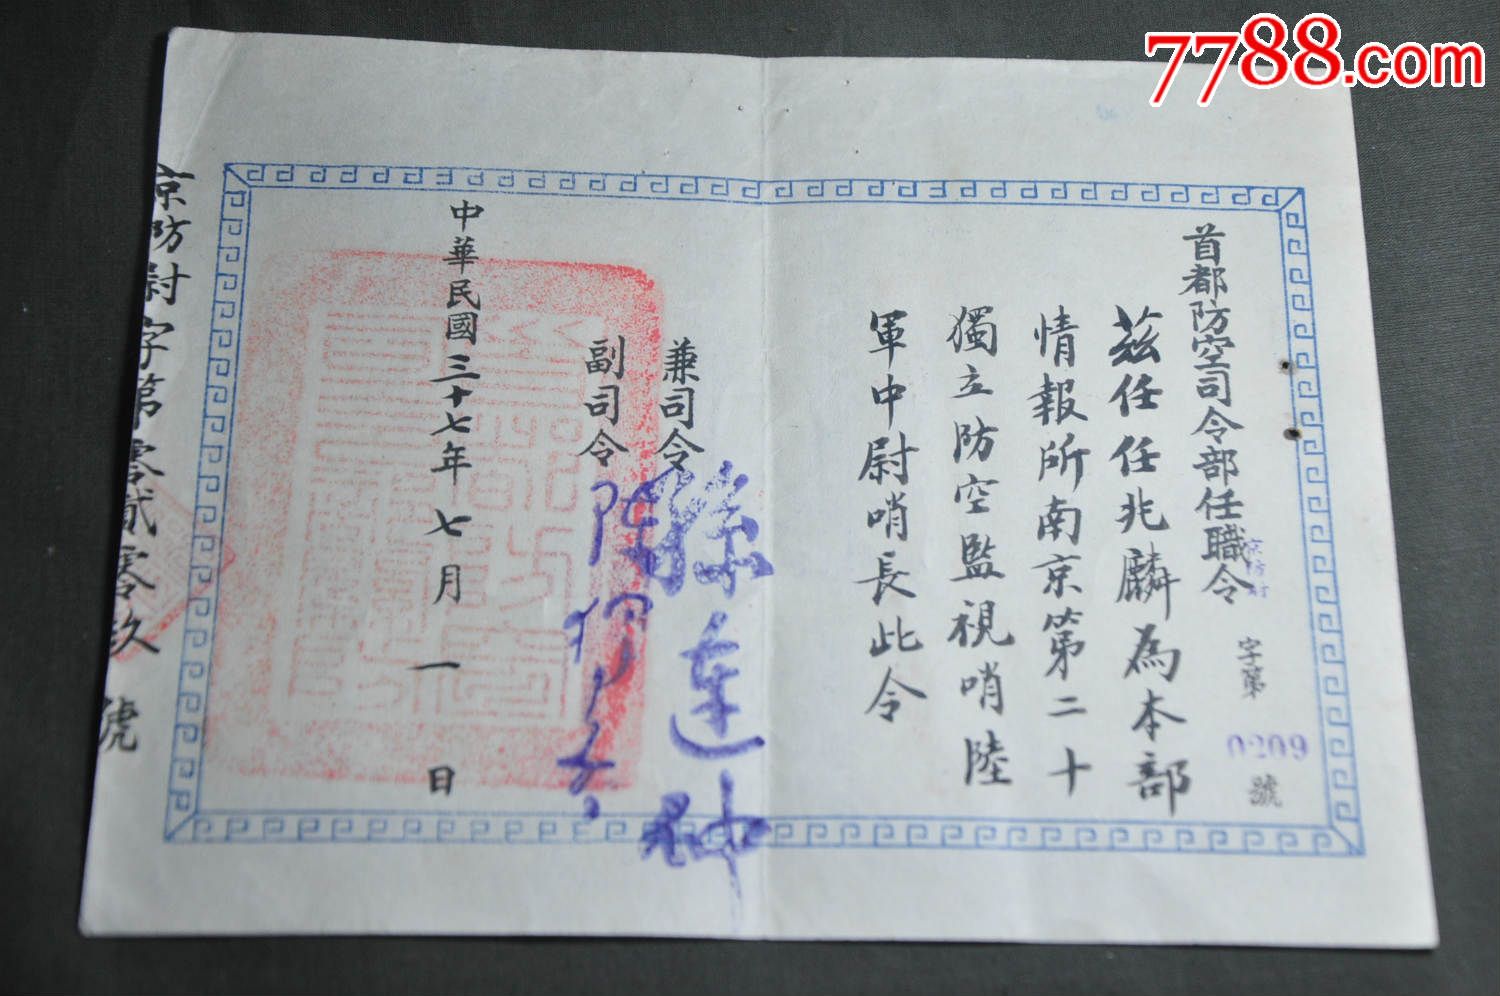 7788.com
首都防空司令部任職令
京防尉字第0209號
茲任任兆麟為本部
情報所南京第二十
獨立防空監視哨陸
軍中尉哨長此令
兼司令孫連仲
副司令
中華民國三十七年七月一日
京防尉字第零貳零玖號